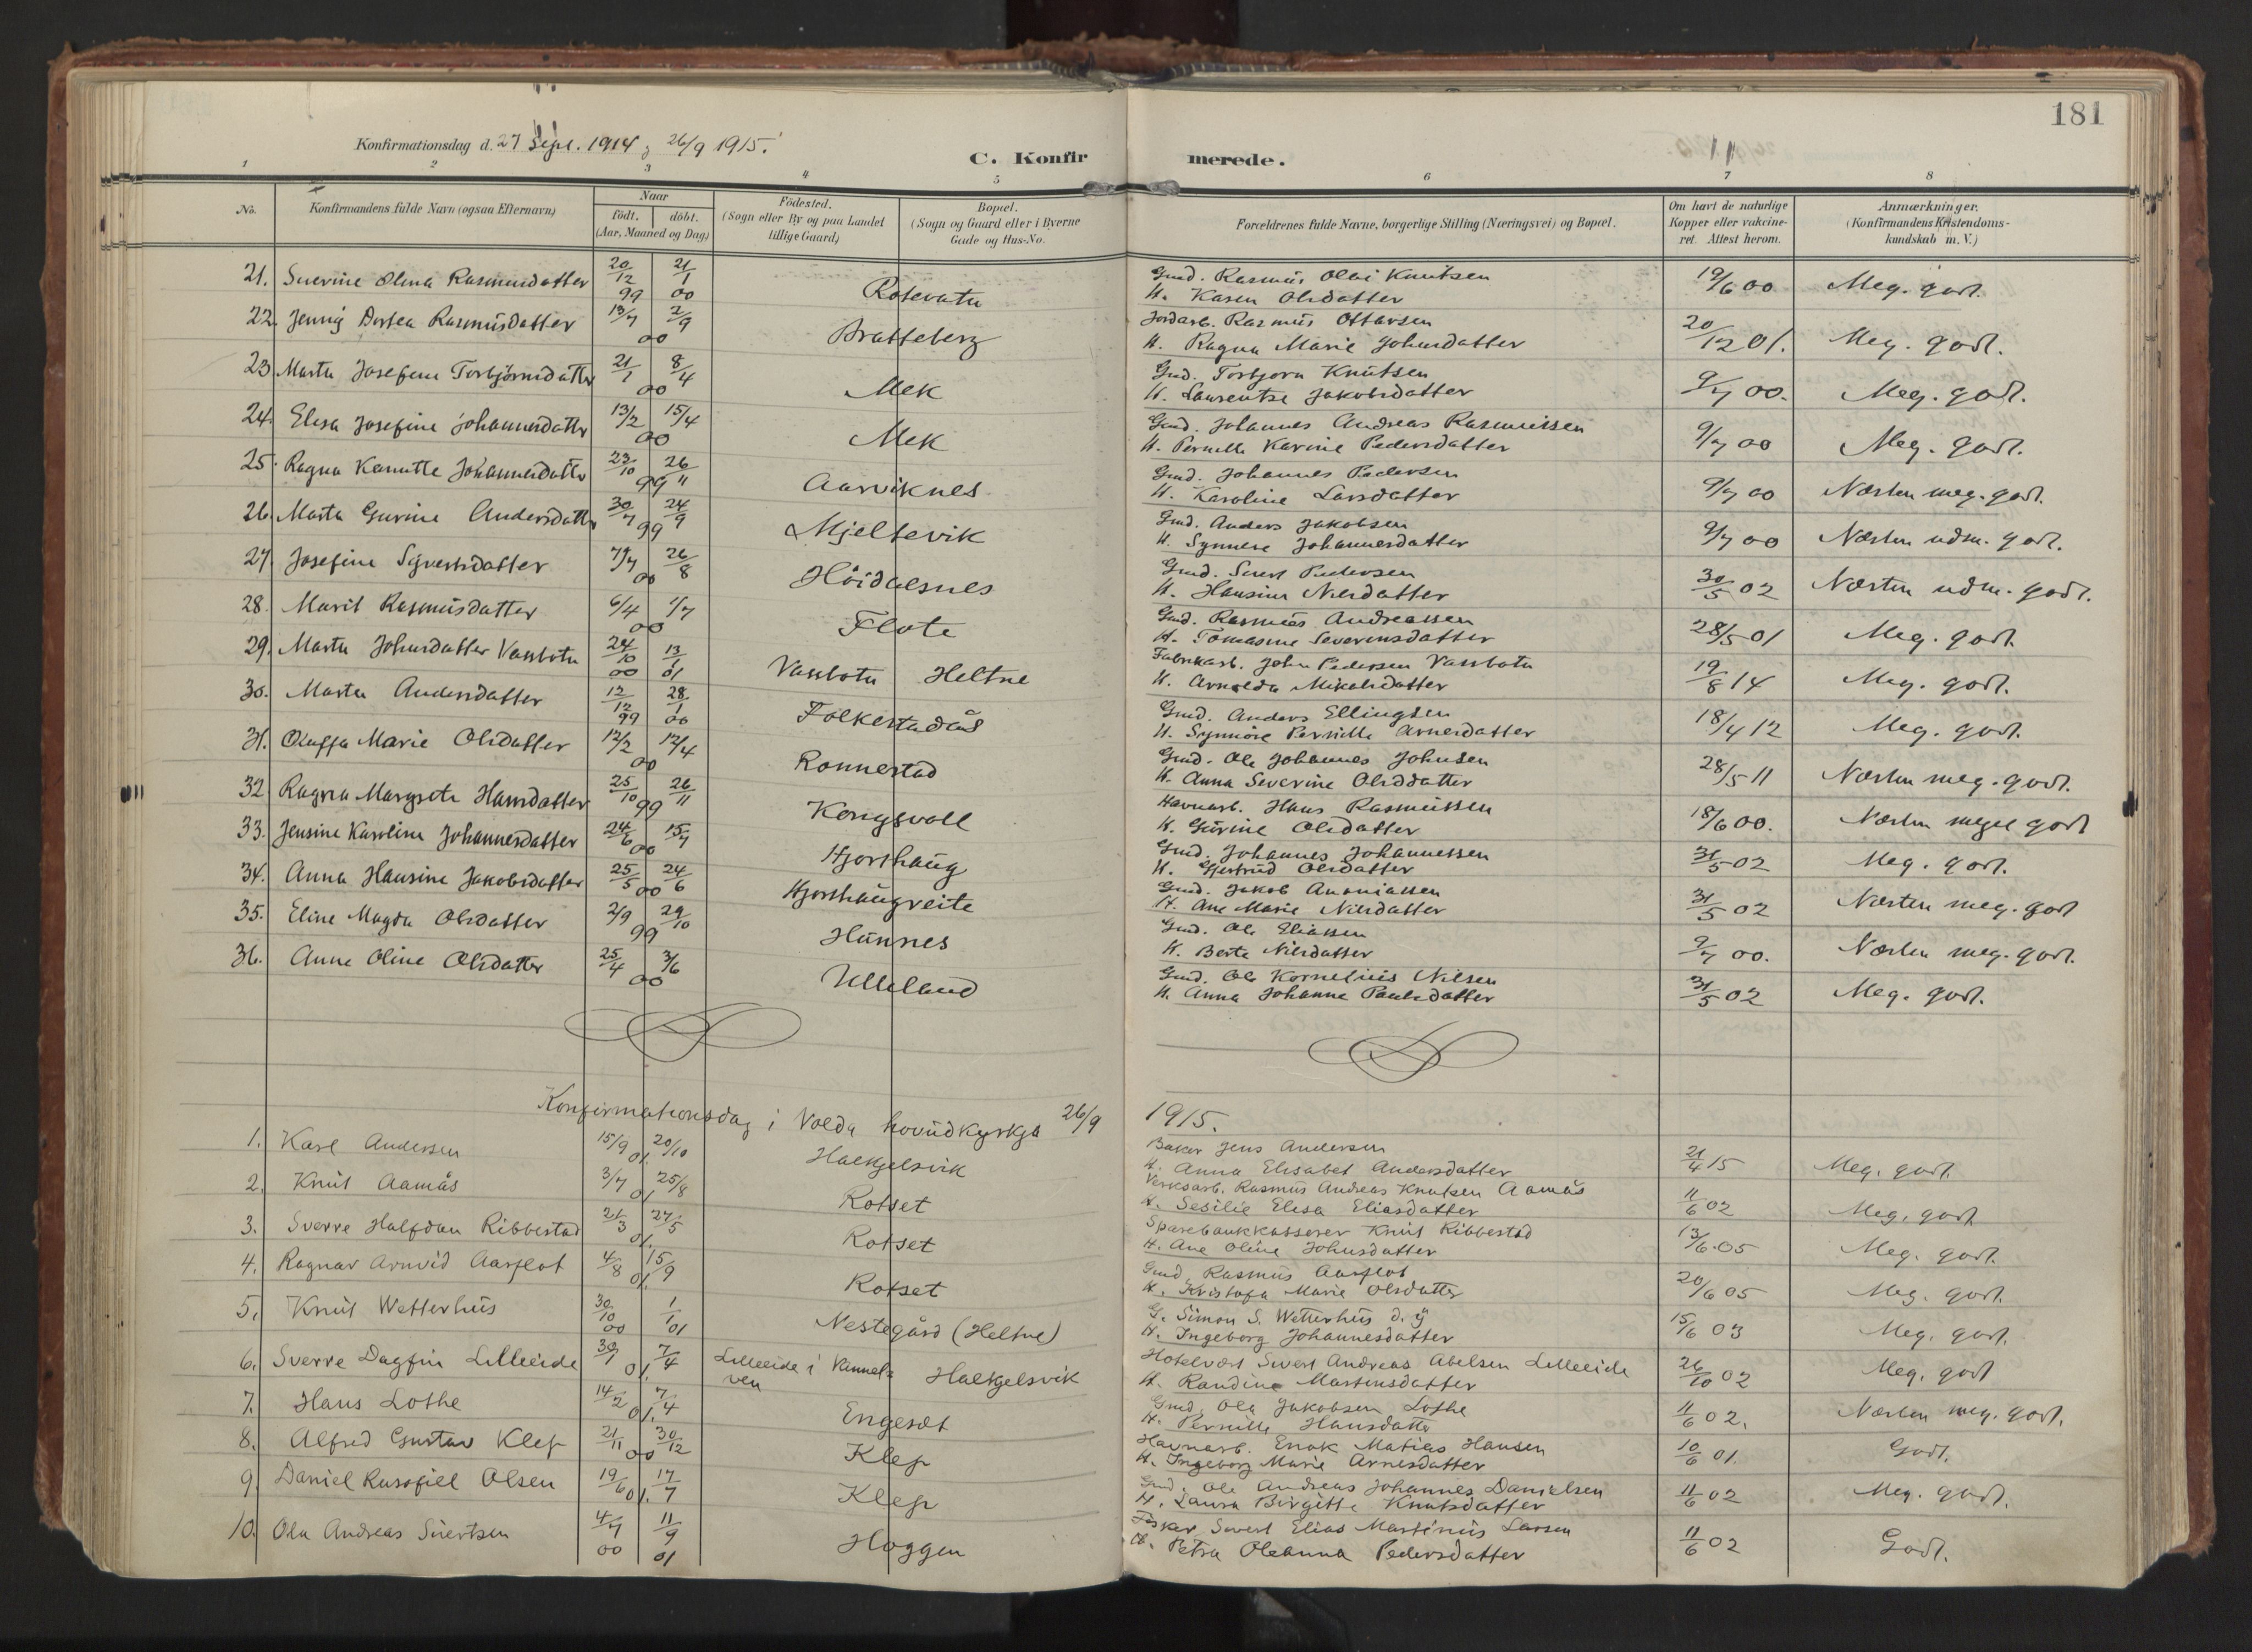 181
Konfirmationsdag d. 27 Sept. 1914 26/9 1915.
C. Konfirmerede.
1 2 3 4 5 6 7 8
No.
Konfirmandens fulde Navn (ogsaa Efternavn)
Naar
født. døbt.
(Aar, Maaned og Dag)
Fødested.
(Sogn eller By og paa Landet
tillige Gaard)
Bopæl.
(Sogn og Gaard eller i Byerne
Gade og Hus-No.
Forældrenes fulde Navne, borgerlige Stilling (Næringsvei) og Bopæl.
Om havt de naturlige
Kopper eller vakcine-
ret. Attest herom.
Anmærkninger.
(Konfirmandens Kristendoms-
kundskab m. V.)
21. Severine Olina Rasmusdatter 20/12 99 21/1 00 Rotevatn Gmd. Rasmus Olai Knutsen 19/6 00 Meg. godt.
H. Karen Olsdatter
22. Jenny Dortea Rasmusdatter 13/7 2/9 00 Bratteberg Jordarb. Rasmus Ottarsen 20/12 01. Meg. godt.
H. Ragna Marie Johnsdatter
23. Marta Josefine Torbjørnsdatter 21/1 8/4 00 Mek Gmd. Torbjørn Knutsen 9/7 00. Meg. godt.
H. Laurentse Jakobsdatter
24. Elesa Josefine Johannesdatter 13/2 15/4 00 Mek Gmd. Johannes Andreas Rasmussen 9/7 00 Meg. godt.
H. Pernille Karine Pedersdatter
25. Ragna Kanutte Johannesdatter 23/10 26/11 99 Aarviknes Gmd. Johannes Pedersen 9/7 00 Næsten meg. godt.
H. Karoline Larsdatter
26. Marta Gurine Andersdatter 30/7 24/9 99 Mjeltevik Gmd. Anders Jakobsen 9/7 00 Næsten udm. godt.
H. Synnøve Johannesdatter
27. Josefine Syvertsdatter 7/7 26/8 00 Höidalsnes Gmd. Sivert Pedersen 30/5 02 Næsten udm. godt.
H. Hansine Nilsdatter
28. Marit Rasmusdatter 6/4 1/7 00 Flote Gmd. Rasmus Andreassen 28/5 01 Meg. godt.
H. Tomasine Severinsdatter
29. Marta Johnsdatter Vassbotn 24/10 00 13/1 01 Vassbotn Heltne Fabrikarb. John Pedersen Vassbotn 19/8 14 Meg. godt.
H. Arnolda Mikalsdatter
30. Marta Andersdatter 12/12 99 28/1 00 Folkestadås Gmd. Anders Ellingsen 18/4 12 Meg. godt.
H. Synnöve Pernille Arnesdatter
31. Oluffa Marie Olsdatter 12/2 12/4 00 Rönnestad Gmd. Ole Johannes Johnsen 28/5 11 Næsten meg. godt.
H. Anna Severine Olsdatter
32. Ragna Margrete Hansdatter 25/10 26/11 99 Kongsvoll Havnarb. Hans Rasmussen 18/6 00. Næsten meget godt
H. Gurine Olsdatter
33. Jensine Karoline Johannesdatter 24/6 15/7 00 Hjorthaug Gmd. Johannes Johannessen 31/5 02 Meg. godt.
H. Gjertrud Olsdatter
34. Anna Hansine Jakobsdatter 25/5 24/6 00 Hjorthaugreite Gmd. Jakob Ananiassen 31/5 02 Næsten meg. godt
H. Ane Marie Nilsdatter
35. Eline Magda Olsdatter 2/9 29/10 99 Hunnes Gmd. Ole Eliassen 9/7 00. Næsten meg. godt.
H. Berte Nilsdatter
36. Anne Oline Olsdatter 25/4 3/6 00 Ulleland Gmd. Ole Kornelius Nilsen 31/5 02 Meg. godt.
H. Anna Johanna Paulsdatter
Konfirmationsdag i Volda hovudkyrkja 26/9 1915.
1. Karl Andersen 15/9 20/10 01. Halkjelsvik Baker Jens Andersen 21/4 15 Meg. godt.
H. Anna Elisabet Andersdatter
2. Knut Aamås 3/7 25/8 01. Rotset Verksarb. Rasmus Andreas Knutsen Aamås 11/6 02 Meg. godt
H. Sesilie Elesa Eliasdatter
3. Sverre Halfdan Ribbestad 21/3 27/5 01. Rotset Sparebankkasserer Knut Ribbestad 13/6.05 Meg. godt.
H. Ane Oline Johnsdatter
4. Ragnar Arnvid Aarflot 4/8 15/9 01. Rotset Gmd. Rasmus Aarflot 20/6 05 Meg. godt.
H. Kristofa Marie Olsdatter
5. Knut Wetterhus 30/10 00 1/1 01 Nestegård (Heltne) G. Simon S. Wetterhus d. y 15/6 03 Meg. godt.
H. Ingeborg Johannesdatter
6. Sverre Dagfin Lilleeide 30/1 7/4 01. Lilleeide i Vannel= Halkjelsvik Hotelvært Sivert Andreas Abelsen Lilleeide 26/10 02 Meg. godt
ven H. Randine Martinsdatter
7. Hans Lothe 14/2 7/4 01. Engeset Gmd. Ola Jakobsen Lothe 11/6 02. Næsten meg. godt.
H. Pernille Hansdatter
8. Alfred Gustav Klep 21/11 30/12 00 Klep Havnarb. Enok Matias Hansen 10/6 01. Godt.
H. Ingeborg Marie Arnesdatter
9. Daniel Rusofiel Olsen 19/6 17/7 01. Klep Gmd. Ole Andreas Johannes Danielsen 11/6 02 Meg. godt.
H. Laura Birgitte Knutsdatter
10. Ola Andreas Sivertsen 4/7 00 11/9 01 Hoggen Fisker Sivert Elias Martinus Larsen 11/6 02 Godt.
H. Petra Oleanna Pedersdatter